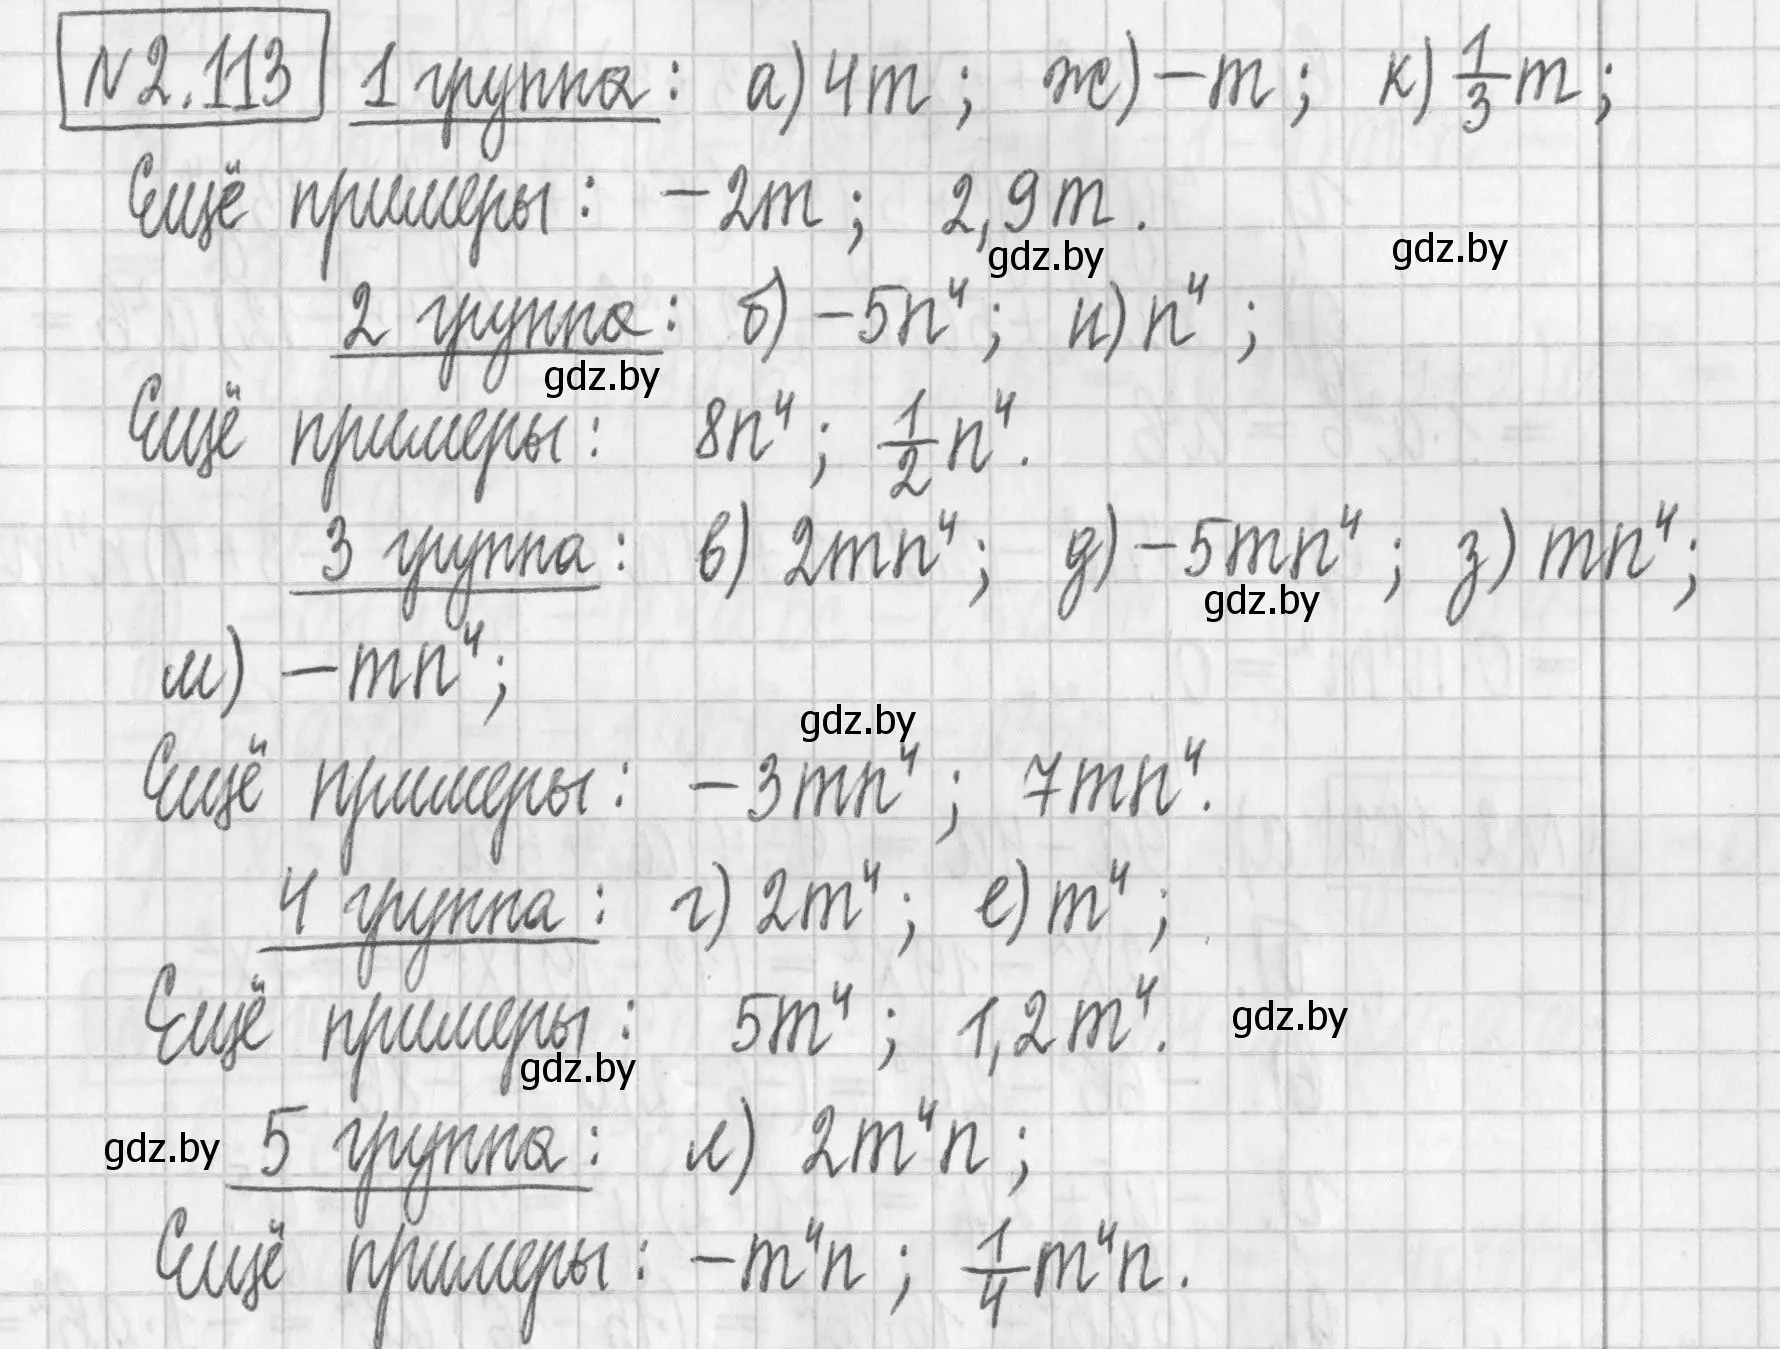 №2.113 1 группа: а) 4m; ж) −m; к) 1/3 m;
Ещё примеры: −2m; 2,9m.
gdz.by gdz.by
2 группа: б) −5n⁴; и) n⁴;
gdz.by
Ещё примеры: 8n⁴; 1/2 n⁴.
3 группа: в) 2mn⁴; д) −5mn⁴; з) mn⁴;
gdz.by
м) −mn⁴;
gdz.by
Ещё примеры: −3mn⁴; 7mn⁴.
4 группа: г) 2m⁴; е) m⁴;
Ещё примеры: 5m⁴; 1,2m⁴.
gdz.by
gdz.by
gdz.by 5 группа: л) 2m⁴n;
Ещё примеры: −m⁴n; 1/4 m⁴n.